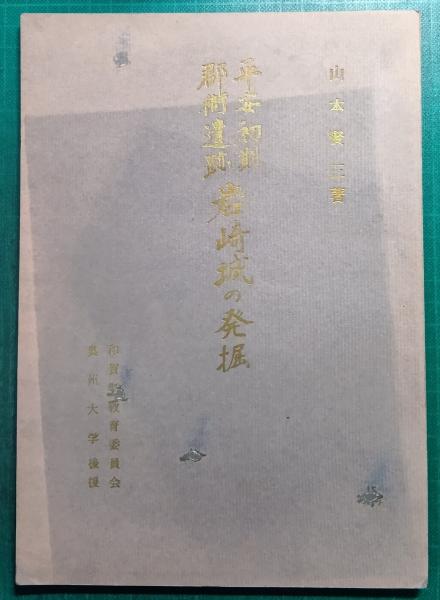 山本賢三著
平安初期
郡衙遺跡
岩崎城の発掘
和賀町教育委員会
奥州大学後援